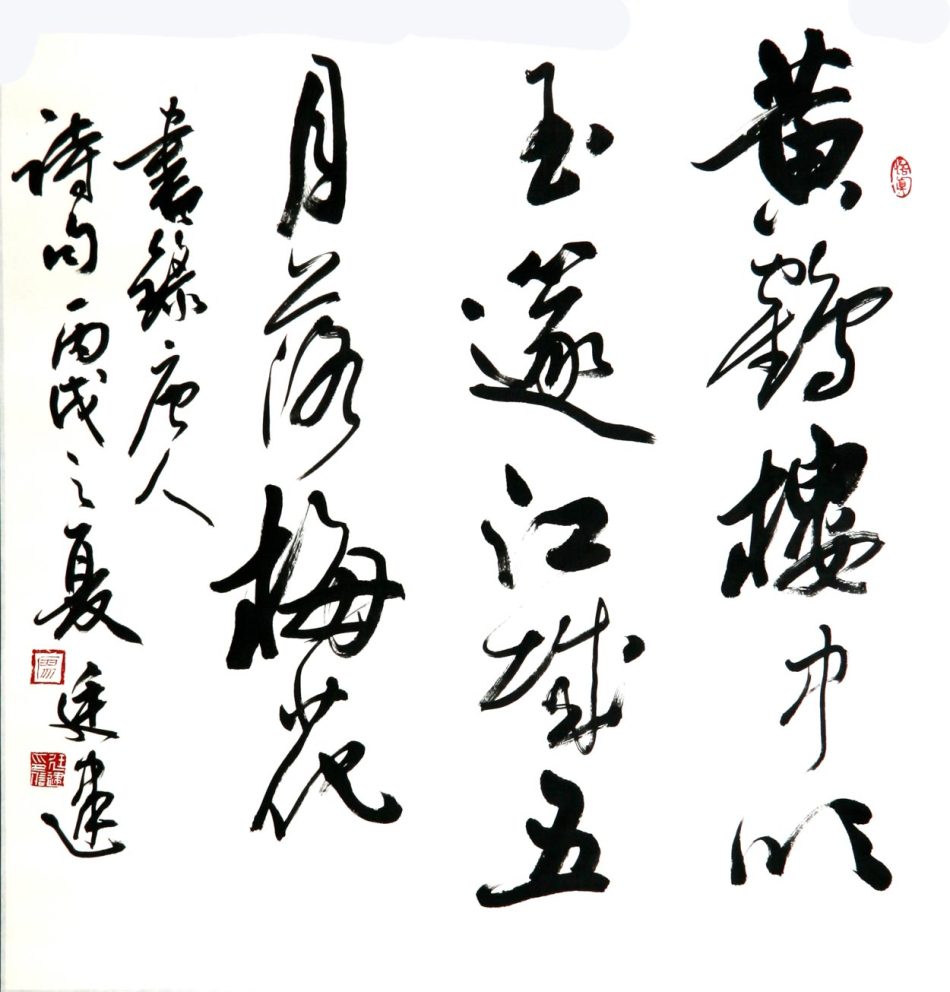 黄鶴樓中吹
玉篴江城五
月落梅花
書錄唐人
詩句丙戌之夏